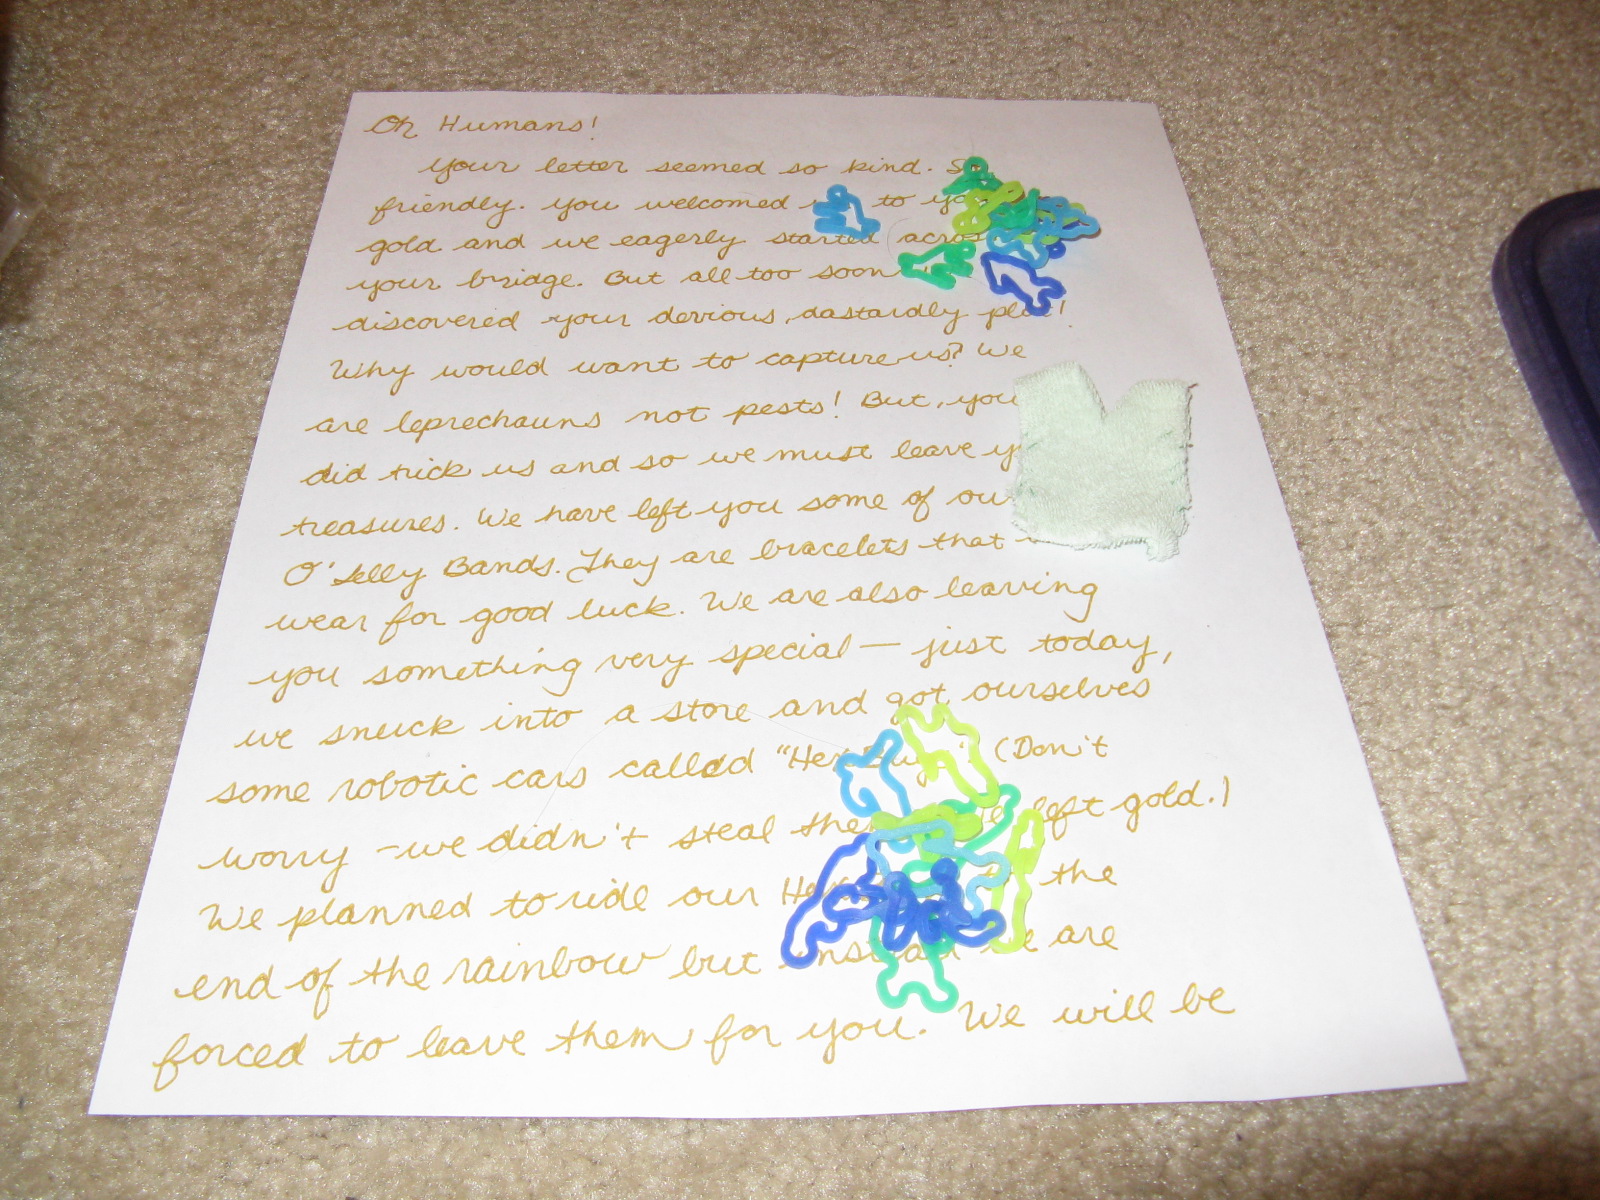 Oh Humans!
Your letter seemed so kind. So
friendly. You welcomed to
gold and we eagerly started across
your bridge. But all too soon
discovered your devious, dastardly plot!
Why would want to capture us? We
are leprechauns not pests! But, you
did trick us and so we must leave
treasures. We have left you some of our
O'Jelly Bands. They are bracelets that
wear for good luck. We are also leaving
you something very special — just today,
we snuck into a store and got ourselves
some robotic cars called "Hex Bug". (Don't
worry - we didn't steal left gold.)
We planned to ride our the
end of the rainbow but instead we are
forced to leave them for you. We will be